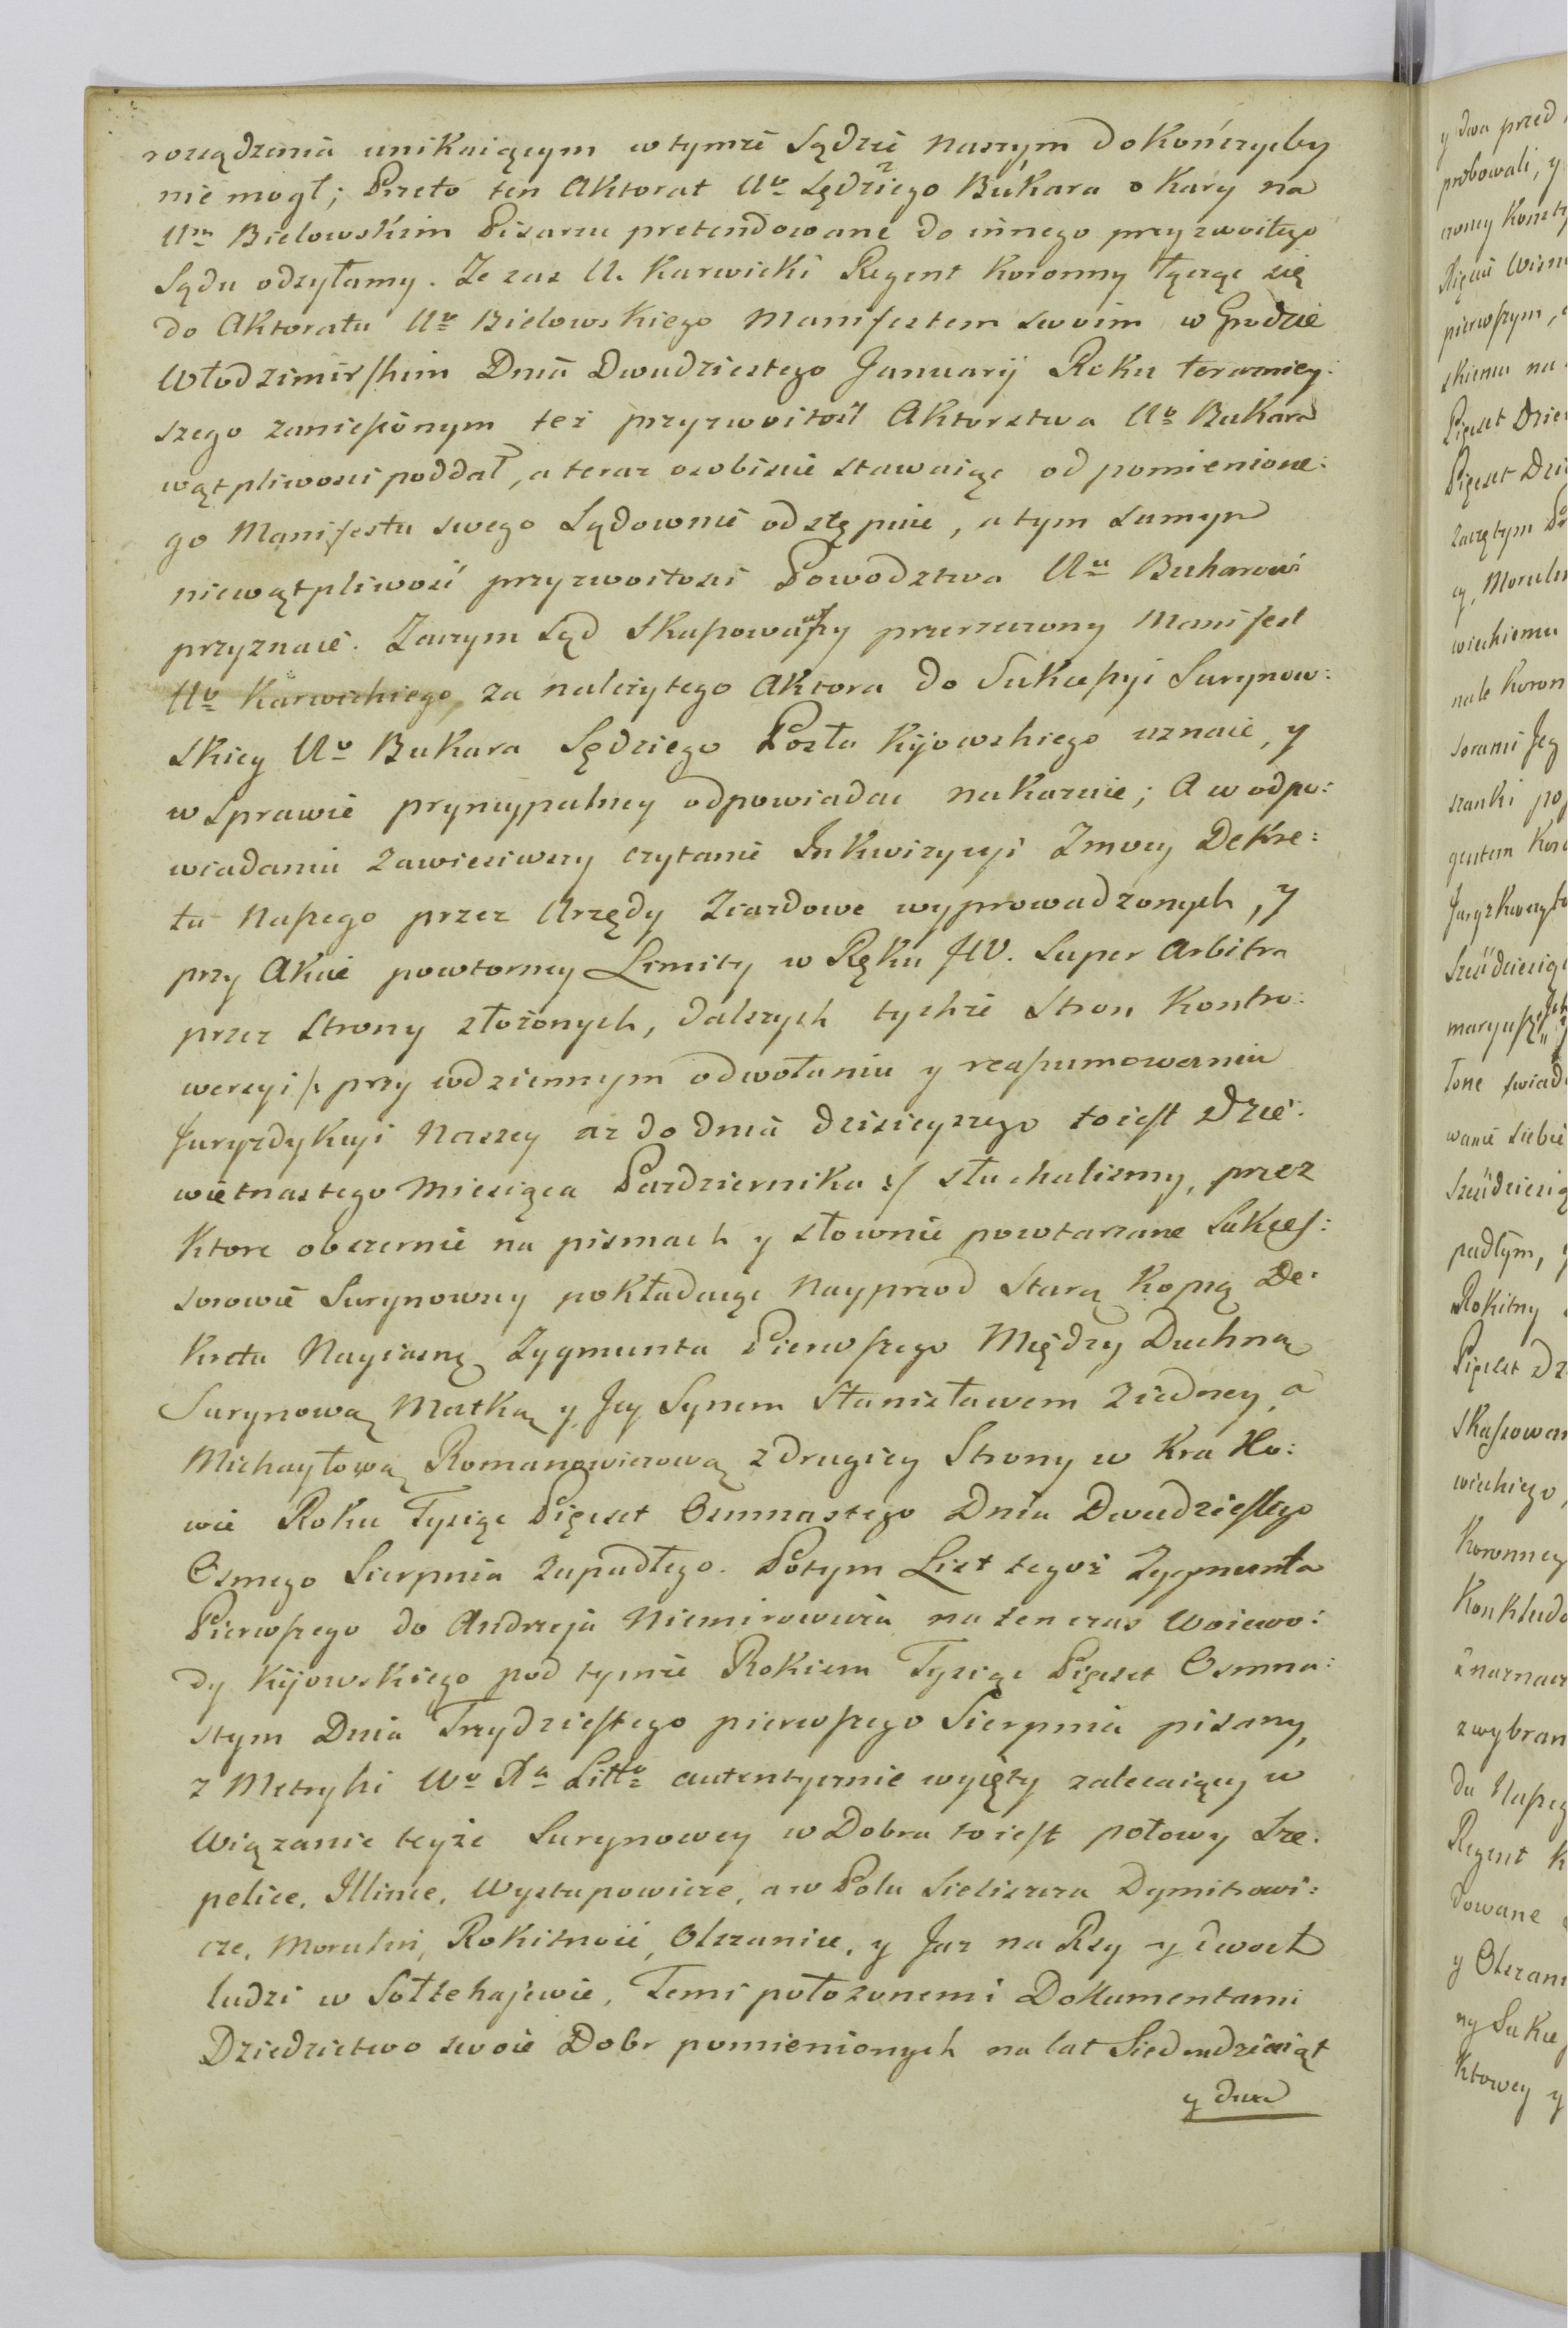 rozsądzenia unikaiącym w tymże Sądzie naszym dokończyćby
nie mogł; Przeto ten Aktorat Uo Sędziego Bukara o kary na
Um Bielowskim Pisarzu pretendowane do innego przyzwoitego
Sądu odsyłamy. Ze zaś U. Karwicki Regent Koronny łącząc się
do Aktoratu Uo Bielowskiego Manifestem swoim w Grodzie
Włodzimirskim Dnia Dwudziestego Januarij Roku teraźniey:
szego zaniesionym też przyzwoitość Aktorstwa Uo Bukara
wątpliwości poddał, a teraz osobiście stawaiąc od pomienione:
go Manifestu swego Sądownie odstępuie, a tym samym
niewątpliwość przyzwoitości Powodztwa Uu Bukarowi
przyznaie. Zaczym Sąd skassowawszy przerzeczony Manifest
Uo Karwickiego, za należytego Aktora do Sukcessyi Surynow:
skiey Uo Bukara Sędziego Posła Kijowskiego uznaie, y
w sprawie pryncypalney odpowiadać nakazuie; A w odpo:
wiadaniu zawiesiwszy czytanie Inkwizycyi Zmocy Dekre:
tu Naszego przez Urzędy Ziazdowe wyprowadzonych, y
przy Akcie powtorney Limity w Ręku JW. Super Arbitra
przez Strony złożonych, dalszych tychże Stron Kontro:
wersyi /: przy codziennym odwołaniu y reassumowaniu
Juryzdykcyi Naszey aż do dnia dzisieyszego to iest Dzie:
więtnastego Miesiąca Pazdziernika :/ słuchalismy, przez
ktore obszernie na pismach y słownie powtarzane Sukces:
sorowie Surynowscy pokładaiąc Nayprzod Starą Kopią De:
kretu Nayiasnę Zygmunta Pierwszego Między Duchną
Surynową Matką y Jey Synem Stanisławem Ziedney, a
Michayłową Romanowiczową z drugiey Strony w Krako:
wie Roku Tysiąc Pięcset Osmnastego Dnia Dwudziestego
Osmego Sierpnia zapadłego. Potym List tegoż Zygmunta
Pierwszego do Andrzeja Niemirowicza na ten czas Woiewo:
dy Kijowskiego pod tymże Rokiem Tysiąc Pięcset Osmna:
stym Dnia Trzydziestego pierwszego Sierpnia pisany,
z Metryki Wo Xa Litto autentycznie wyięty zalecaiący w
Wiązanie teyże Surynowey w Dobra to iest połowy Sze:
pelice, Illince, Wystupowicze, a w Polu Sieliszcza Dymitrowi:
cze, Moruhn, Rokitnoie, Olszanice, y Jaz na Rsy y dwoch
ludzi w Sołtehajewie, Temi położonemi Dokumentami
Dziedzictwo swoie Dobr pomienionych na lat Siedmdziesiąt
y dwa
y dwa przed
probowali, y
pierwszym,
skiemu na
Pięcset
Pięcset
zaczętym
wickiemu
nale Koron
sorami Jey
szanki po
gentem
wanie siebie
padłym,
Rokitny
Pięcset
skassowa
wickiego
Koronney
Konkludo
z wybran
du Naszeg
Regent K
dowane
y Olszani
ny Sukce
ktorey y